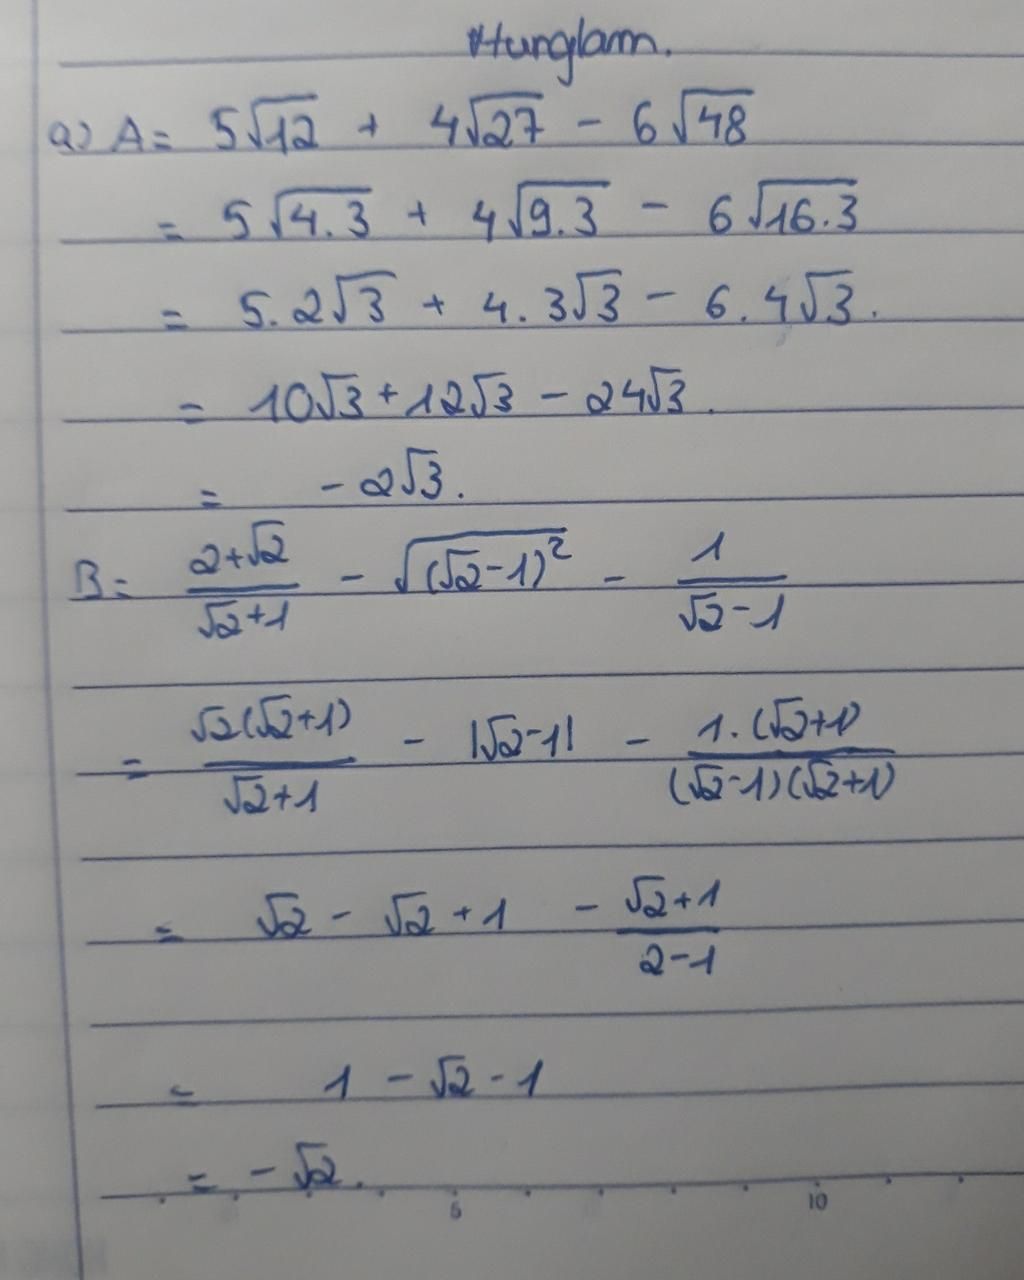 Hunglam.
a) A = 5√12 + 4√27 - 6√48
= 5√4.3 + 4√9.3 - 6√16.3
= 5.2√3 + 4.3√3 - 6.4√3.
= 10√3 + 12√3 - 24√3.
= -2√3.
B = (2+√2)/(√2+1) - √((√2-1)²) - 1/(√2-1)
= √2(√2+1)/(√2+1) - |√2-1| - 1.(√2+1)/((√2-1)(√2+1))
= √2 - √2 + 1 - (√2+1)/(2-1)
= 1 - √2 - 1
= -√2.
5 10